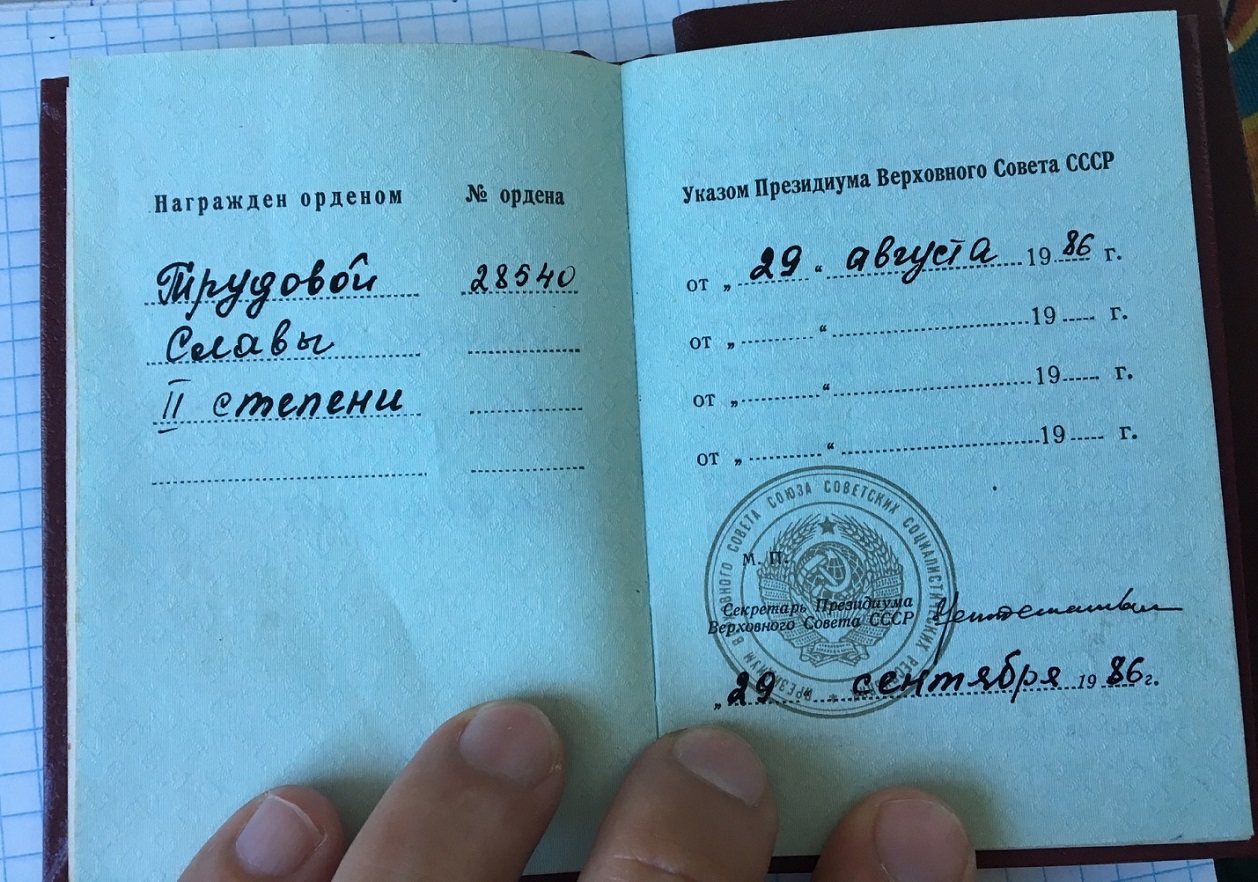 Награжден орденом № ордена
Трудовой 28540
Славы
II степени
Указом Президиума Верховного Совета СССР
от „ 29 “ августа 19 86 г.
от „ “ 19 г.
от „ “ 19 г.
от „ “ 19 г.
ПРЕЗИДИУМ ВЕРХОВНОГО СОВЕТА СОЮЗА СОВЕТСКИХ СОЦИАЛИСТИЧЕСКИХ
М. П.
Секретарь Президиума
Верховного Совета СССР
„ 29 “ сентября 19 86 г.